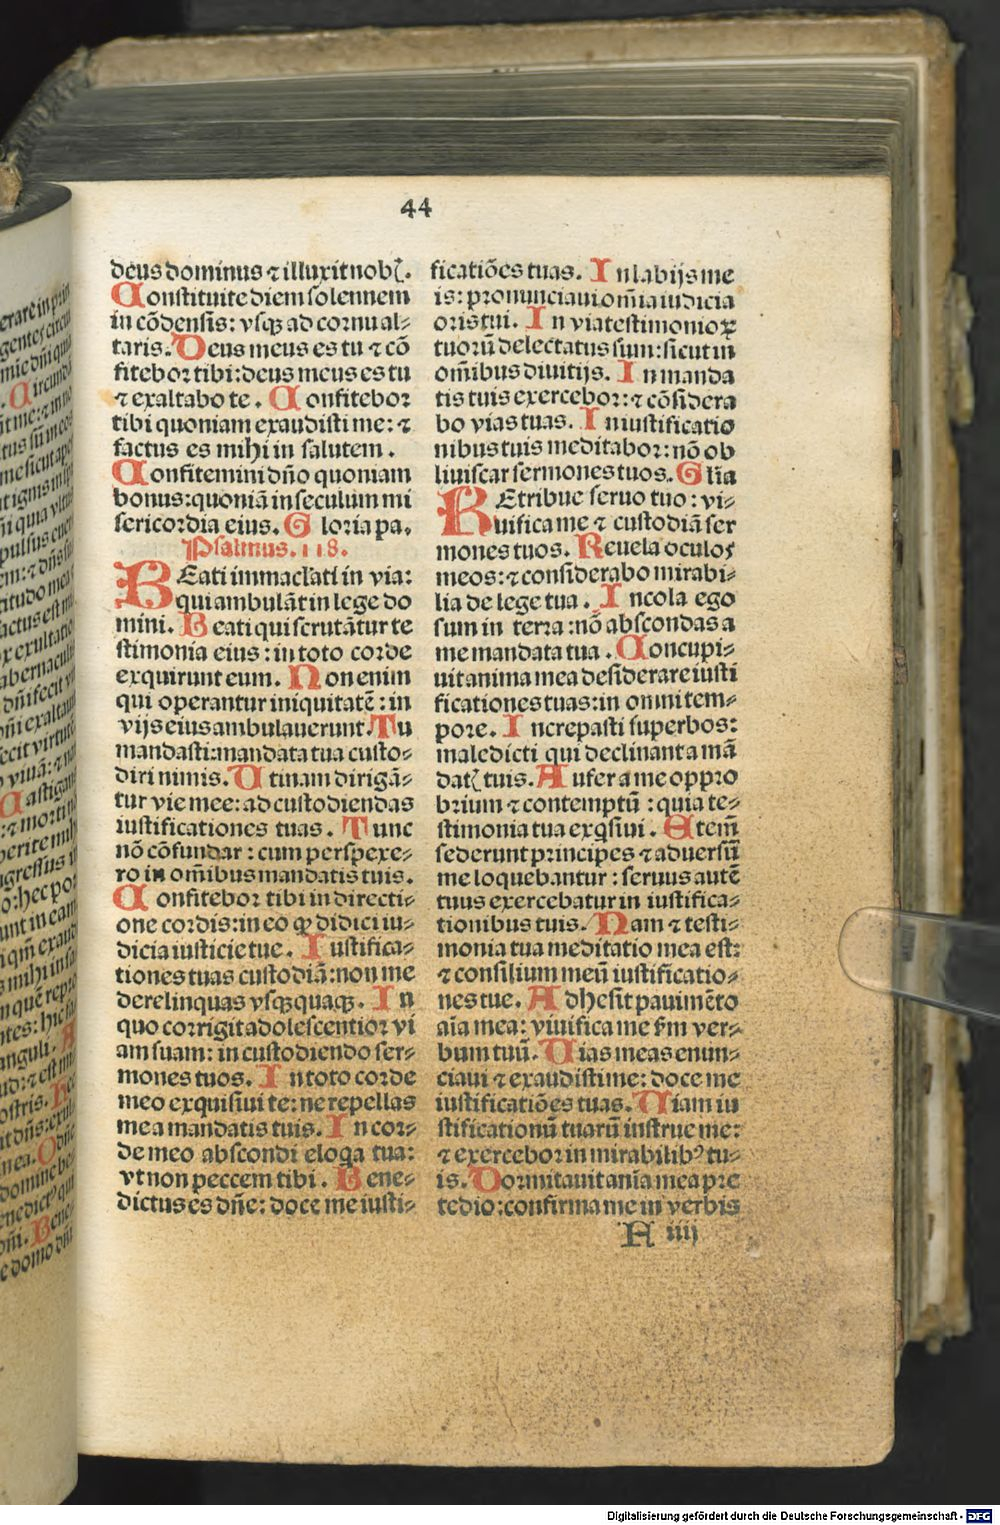 44
deus dominus ⁊ illuxit nob̃.
Constituite diem solennem
in cõdensis: vsqꝫ ad cornu al⸗
taris. Deus meus es tu ⁊ cõ
fitebor tibi: deus meus es tu
⁊ exaltabo te. Confitebor
tibi quoniam exaudisti me: ⁊
factus es mihi in salutem.
Confitemini dño quoniam
bonus: quoniã in seculum mi
sericordia eius. Gloria pa.
Psalmus. 118.
BEati immaculati in via:
qui ambulãt in lege do
mini. Beati qui scrutãtur te
stimonia eius: in toto corde
exquirunt eum. Non enim
qui operantur iniquitatẽ: in
vijs eius ambulauerunt. Tu
mandasti: mandata tua custo⸗
diri nimis. Utinam dirigã⸗
tur vie mee: ad custodiendas
iustificationes tuas. Tunc
nõ cõfundar: cum perspexe⸗
ro in om̃ibus mandatis tuis.
Confitebor tibi in directi⸗
one cordis: in eo ꝙ didici iu⸗
dicia iusticie tue. Iustifica⸗
tiones tuas custodiã: non me
derelinquas vsqꝫquaqꝫ. In
quo corrigit adolescentior vi
am suam: in custodiendo ser⸗
mones tuos. In toto corde
meo exquisiui te: ne repellas
me a mandatis tuis. In cor⸗
de meo abscondi eloqa tua:
vt non peccem tibi. Bene⸗
dictus es dñe: doce me iusti⸗
ficatiões tuas. In labijs me
is: pronunciaui om̃ia iudicia
oris tui. In via testimonioꝝ
tuorũ delectatus sum: sicut in
om̃ibus diuitijs. In manda
tis tuis exercebor: ⁊ cõsidera
bo vias tuas. In iustificatio
nibus tuis meditabor: nõ ob
liuiscar sermones tuos. Glia
REtribue seruo tuo: vi⸗
uifica me ⁊ custodiã ser
mones tuos. Reuela oculos
meos: ⁊ considerabo mirabi⸗
lia de lege tua. Incola ego
sum in terra: nõ abscondas a
me mandata tua. Concupi⸗
uit anima mea desiderare iusti
ficationes tuas: in omni tem⸗
pore. Increpasti superbos:
maledicti qui declinant a mã
dat̃ tuis. Aufer a me oppro
brium ⁊ contemptũ: quia te⸗
stimonia tua exqsiui. Etem̃
sederunt principes ⁊ aduersũ
me loquebantur: seruus autẽ
tuus exercebatur in iustifica⸗
tionibus tuis. Nam ⁊ testi⸗
monia tua meditatio mea est:
⁊ consilium meũ iustificatio⸗
nes tue. Adhesit pauimẽto
aĩa mea: viuifica me fm ver⸗
bum tuũ. Uias meas enun⸗
ciaui ⁊ exaudisti me: doce me
iustificatiões tuas. Uiam iu
stificationũ tuarũ instrue me:
⁊ exercebor in mirabilibꝰ tu⸗
is. Dormitauit anĩa mea pre
tedio: confirma me in verbis
H iiij
Digitalisierung gefördert durch die Deutsche Forschungsgemeinschaft - DFG